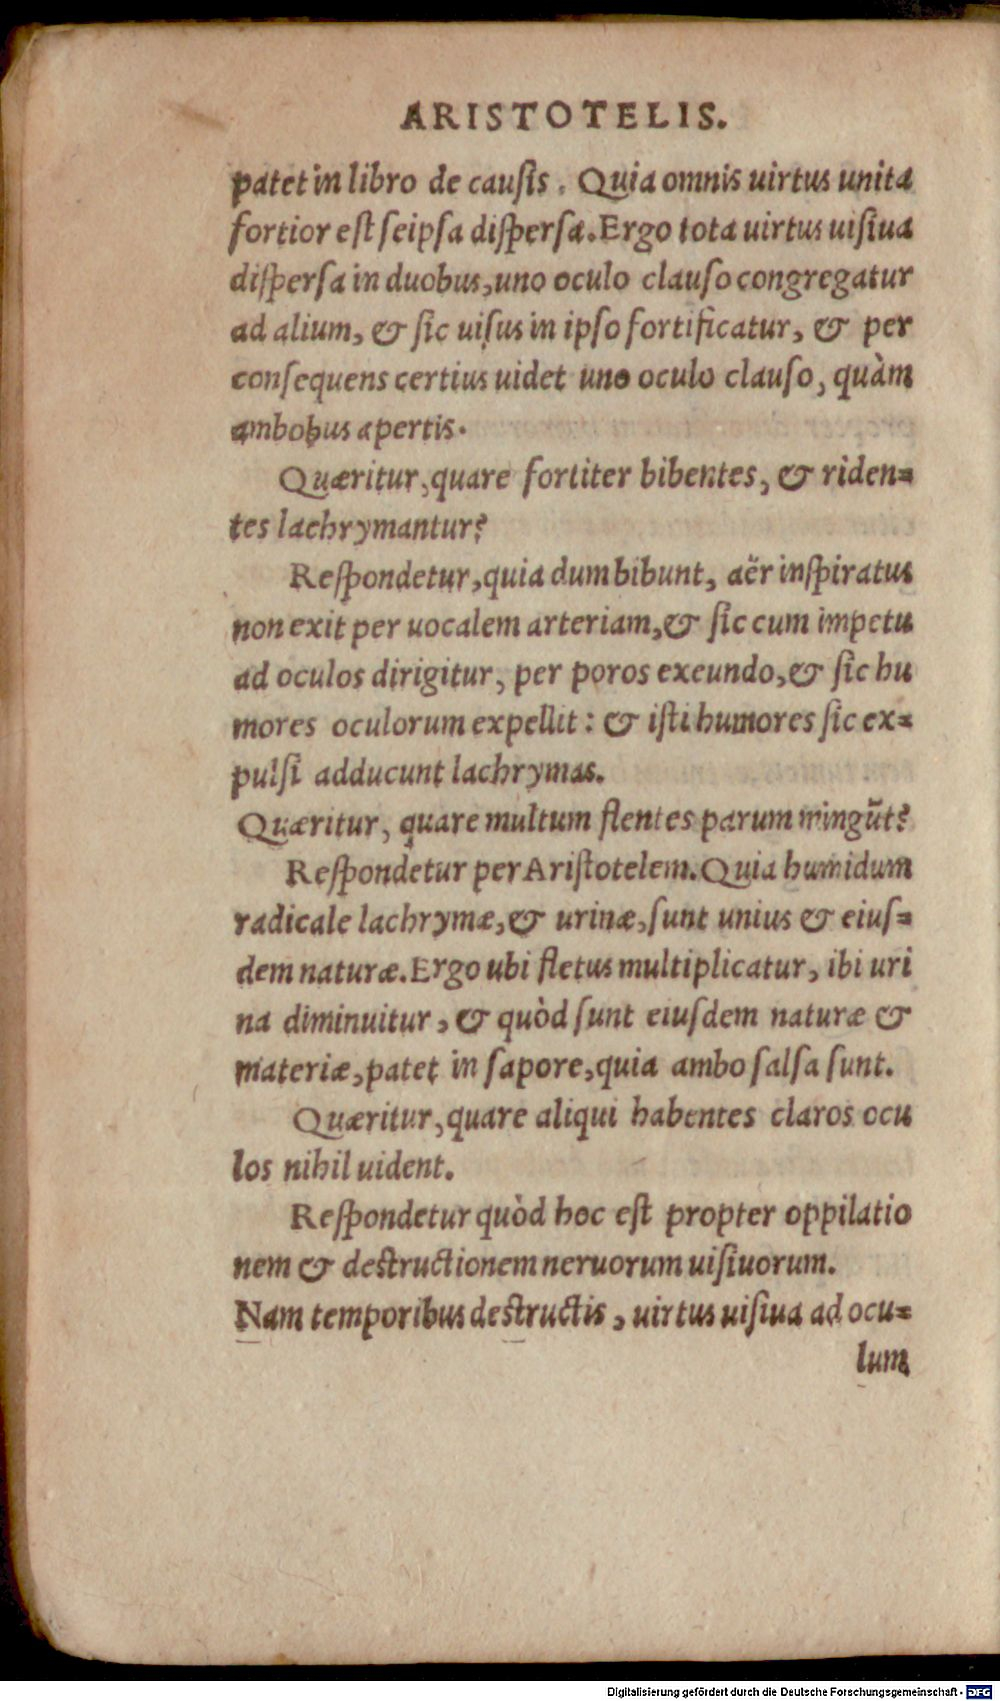 ARISTOTELIS.
patet in libro de causis. Quia omnis uirtus unita
fortior est seipsa dispersa. Ergo tota uirtus uisiua
dispersa in duobus, uno oculo clauso congregatur
ad alium, & sic uisus in ipso fortificatur, & per
consequens certius uidet uno oculo clauso, quàm
ambobus apertis.
Quæritur, quare fortiter bibentes, & riden=
tes lachrymantur?
Respondetur, quia dum bibunt, aër inspiratus
non exit per uocalem arteriam, & sic cum impetu
ad oculos dirigitur, per poros exeundo, & sic hu
mores oculorum expellit: & isti humores sic ex=
pulsi adducunt lachrymas.
Quæritur, quare multum flentes parum mingūt?
Respondetur per Aristotelem. Quia humidum
radicale lachrymæ, & urinæ, sunt unius & eius=
dem naturæ. Ergo ubi fletus multiplicatur, ibi uri
na diminuitur, & quòd sunt eiusdem naturæ &
materiæ, patet in sapore, quia ambo salsa sunt.
Quæritur, quare aliqui habentes claros ocu
los nihil uident.
Respondetur quòd hoc est propter oppilatio
nem & destructionem neruorum uisiuorum.
Nam temporibus destructis, uirtus uisiua ad ocu=
lum
Digitalisierung gefördert durch die Deutsche Forschungsgemeinschaft - DFG